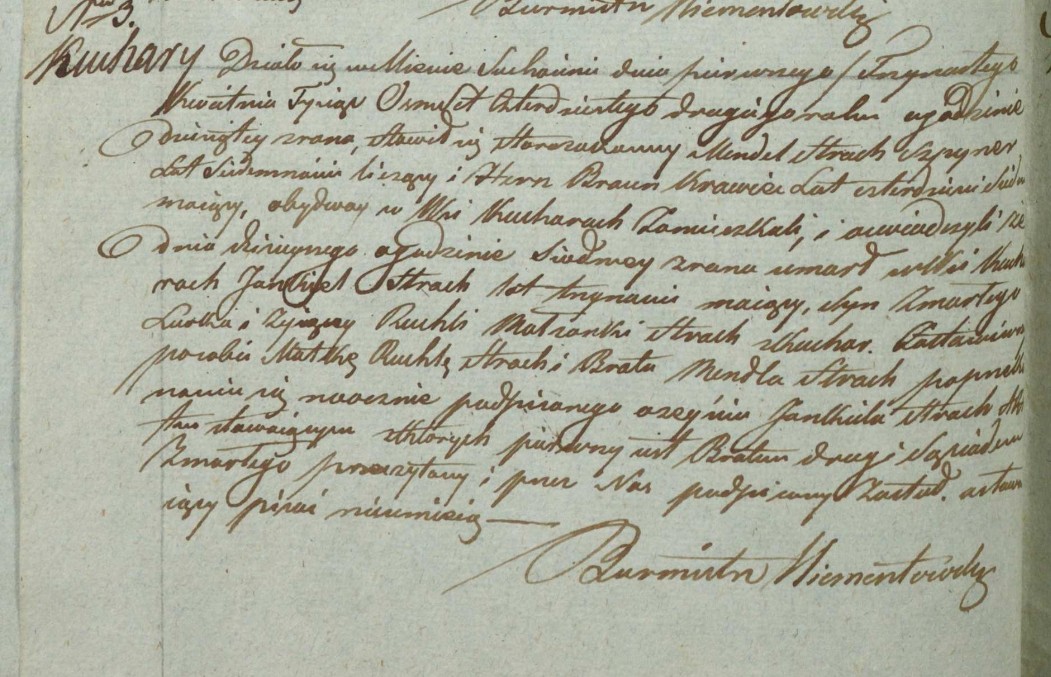 Nro 3. Burmistrz Niementowski
Kuchary Działo się w Mieście Suchocinie dnia pierwszego / trzynastego
Kwietnia Tysiąc Osmset czterdziestego drugiego roku o godzinie
dziesiątey zrana, stawił się starozakonny Mendel Strach Szpyner
Lat Siedemnaście liczący i Hern Braun Krawiec Lat czterdzieści
maiący, obydway w Wsi Kucharach Zamieszkali, i oswiadczyli iż
dnia dzisieyszego o godzinie Siodmey zrana umarł w Wsi Kucha
rach Jankiel Strach lat trzynaście maiący, Syn Zmarłego
Lewka i żyiącey Ruchli Małżonki Strach z Kuchar. Zostawiwszy
po sobie Matkę Ruchlę Strach i Brata Mendla Strach po przeko
naniu się naocznie podpisanego o zeyściu Jankiela Strach Akt
ten stawaiącym których pierwszy iest Bratem drugi Sąsiadem
Zmarłego przeczytany i przez Nas podpisany Został. a stawa
iący pisać nieumieią —
Burmistrz Niementowski